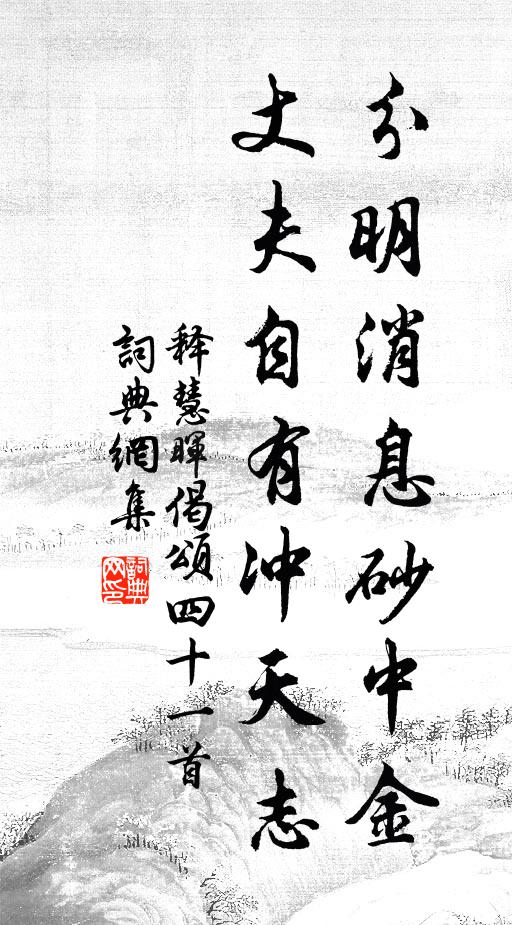 分明消息砂中金
丈夫自有冲天志
释慧暉偈頌四十一首
詞典網集
詞典網印